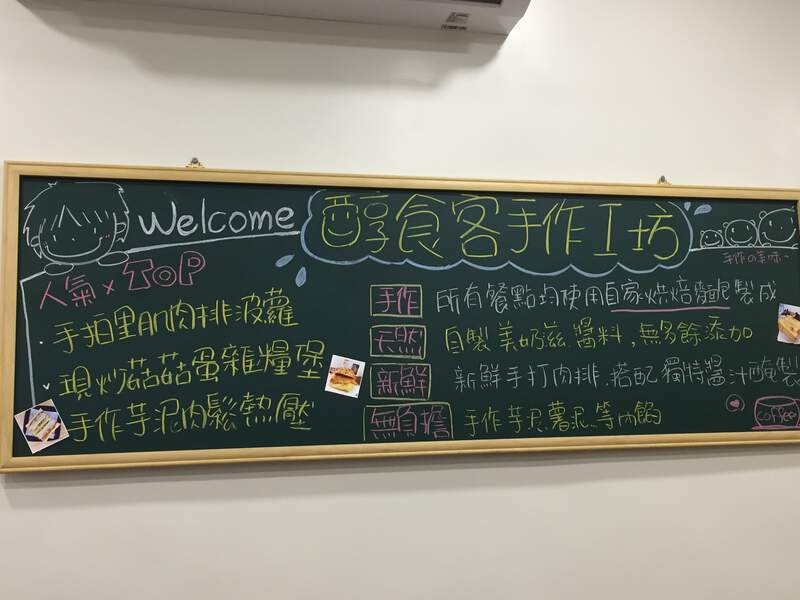 Welcome
醇食客手作工坊
手作の美味~
人氣 x TOP
·手拍里肌肉排波蘿
·現炒菇菇蛋雜糧堡
手作芋泥肉鬆熱壓
手作 所有餐點均使用自家烘焙麵包製成
天然 自製美奶滋.醬料,無多餘添加
新鮮 新鮮手打肉排.搭配獨特醬汁醃製
無負擔 手作芋泥.薯泥.等內餡
coffee